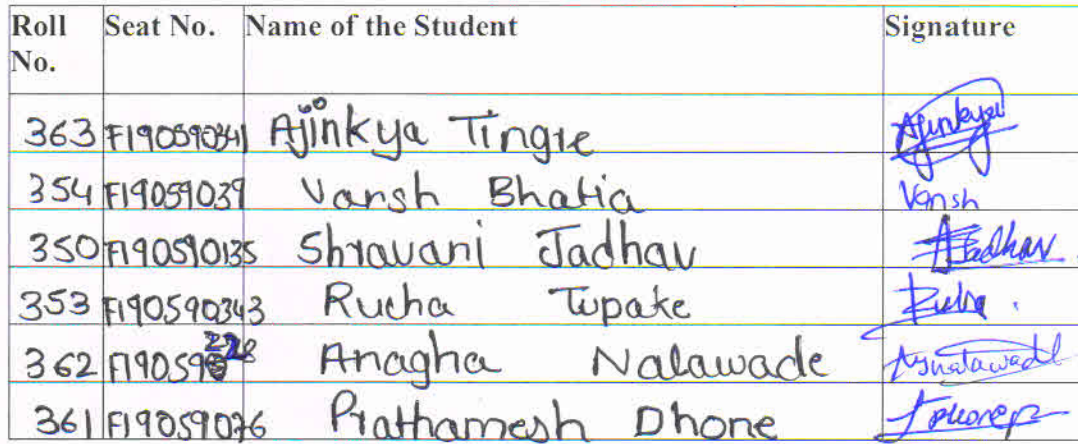 Roll No. Seat No. Name of the Student Signature
363 F190590341 Ajinkya Tingre Ajinkya
354 F19059039 Vansh Bhatia Vansh
350 F190590135 Shravani Jadhav Jadhav
353 F190590343 Rucha Tupake Rucha
362 Anagha Nalawade
361 F19059076 Prathamesh Dhone